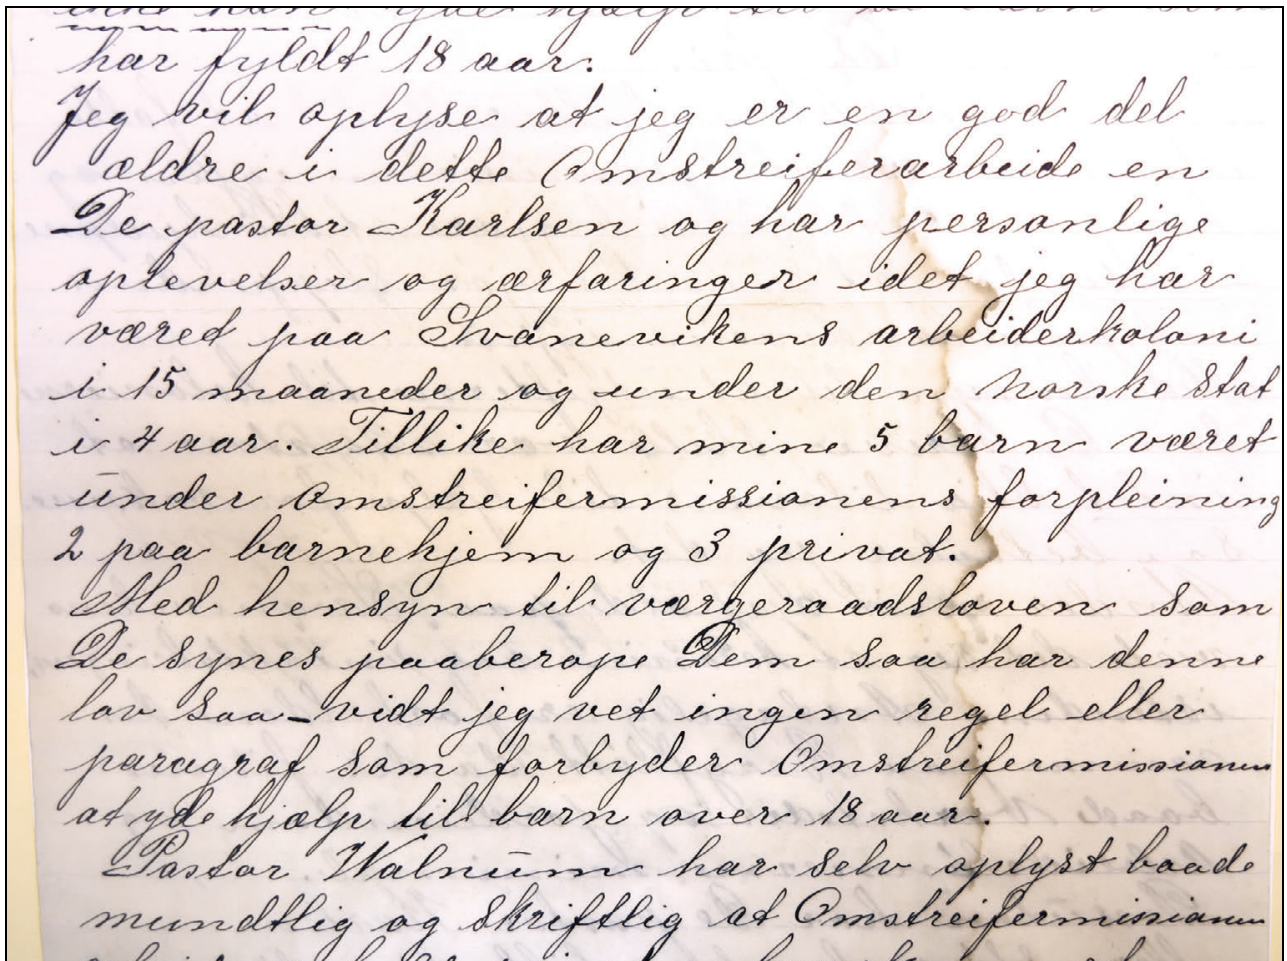 ikke kan yde hjælp til
har fyldt 18 aar.
Jeg vil oplyse at jeg er en god del
ældre i dette Omstreiferarbeide en
De pastor Karlsen og har personlige
oplevelser og ærfaringer idet jeg har
været paa Svanevikens arbeiderkoloni
i 15 maaneder og under den norske stat
i 4 aar. Tillike har mine 5 barn været
under omstreifermissionens forpleining
2 paa barnehjem og 3 privat.
Med hensyn til værgeraadsloven som
De synes paaberope Dem saa har denne
lov saa-vidt jeg vet ingen regel eller
paragraf som forbyder Omstreifermissionen
at yde hjælp til barn over 18 aar.
Pastor Walnum har selv oplyst baade
mundtlig og skriftlig at Omstreifermissionen